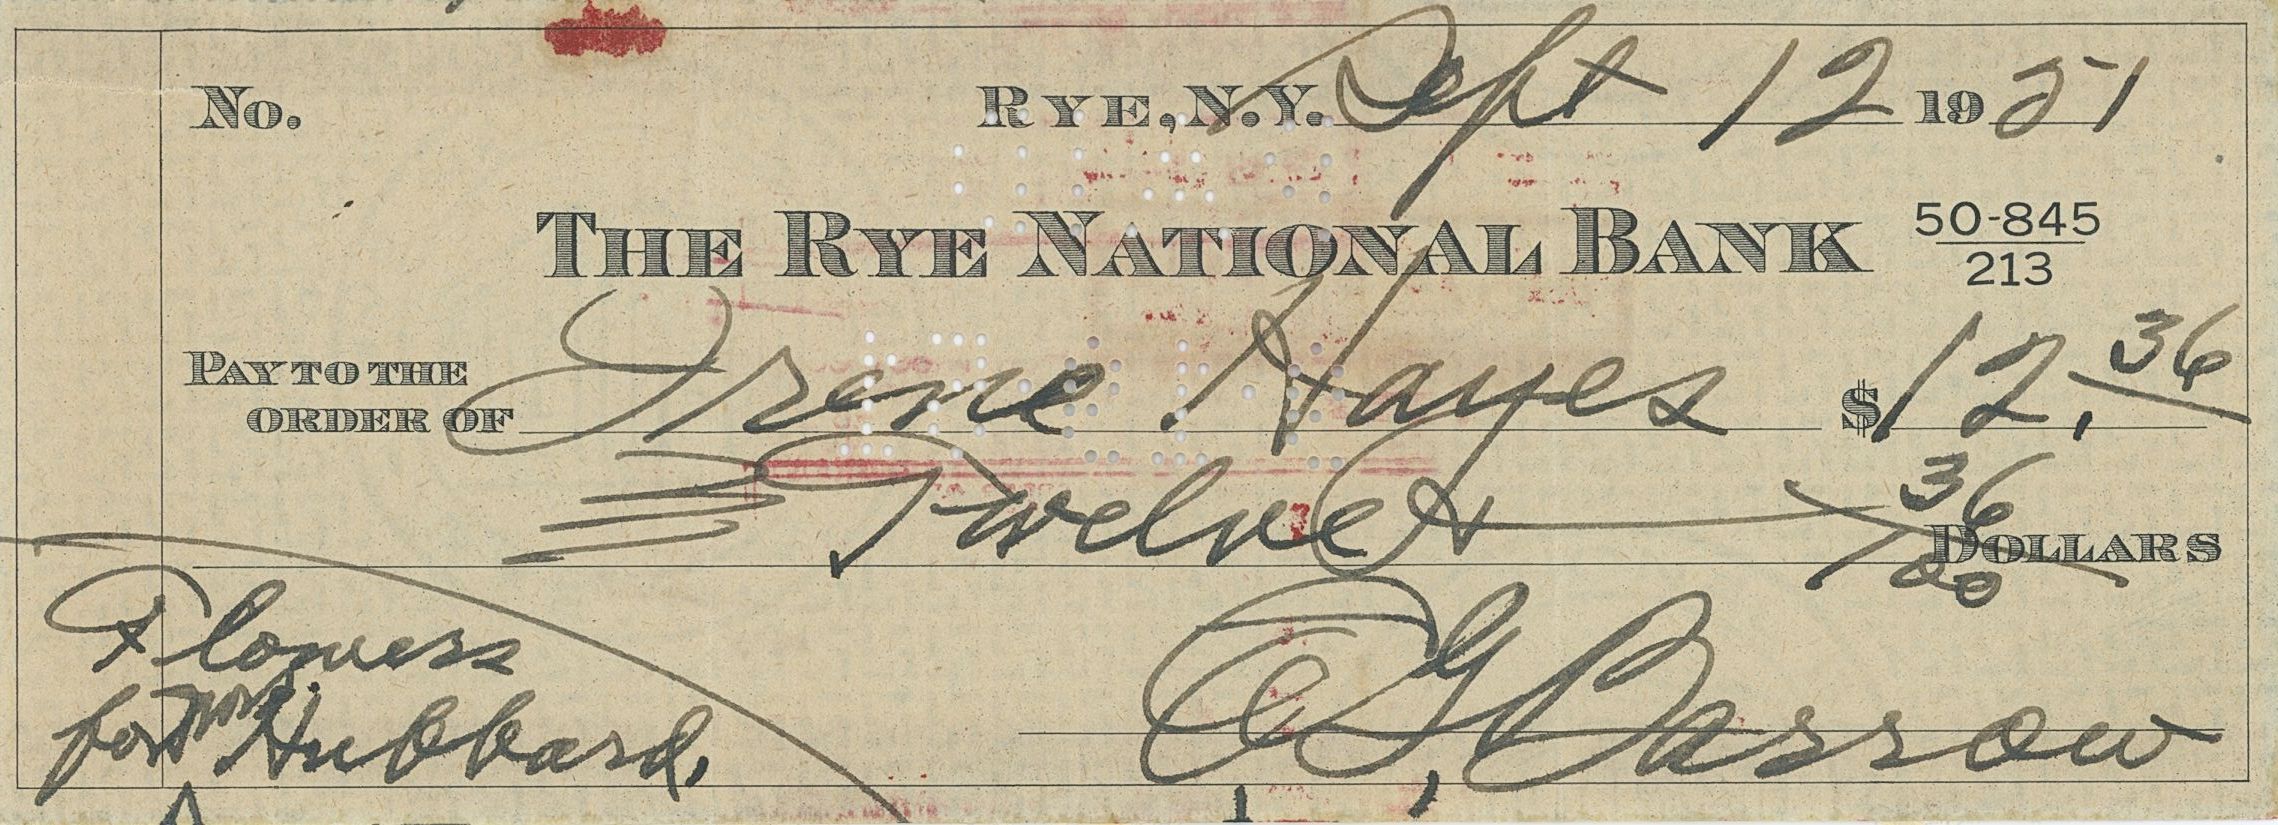 No.
RYE, N.Y. Sept 12 1951
THE RYE NATIONAL BANK 50-845
213
PAY TO THE
ORDER OF Irene Hayes $12.36
Twelve & 36/100 DOLLARS
Flowers
for Mrs Hubbard,
E. G. Barrow